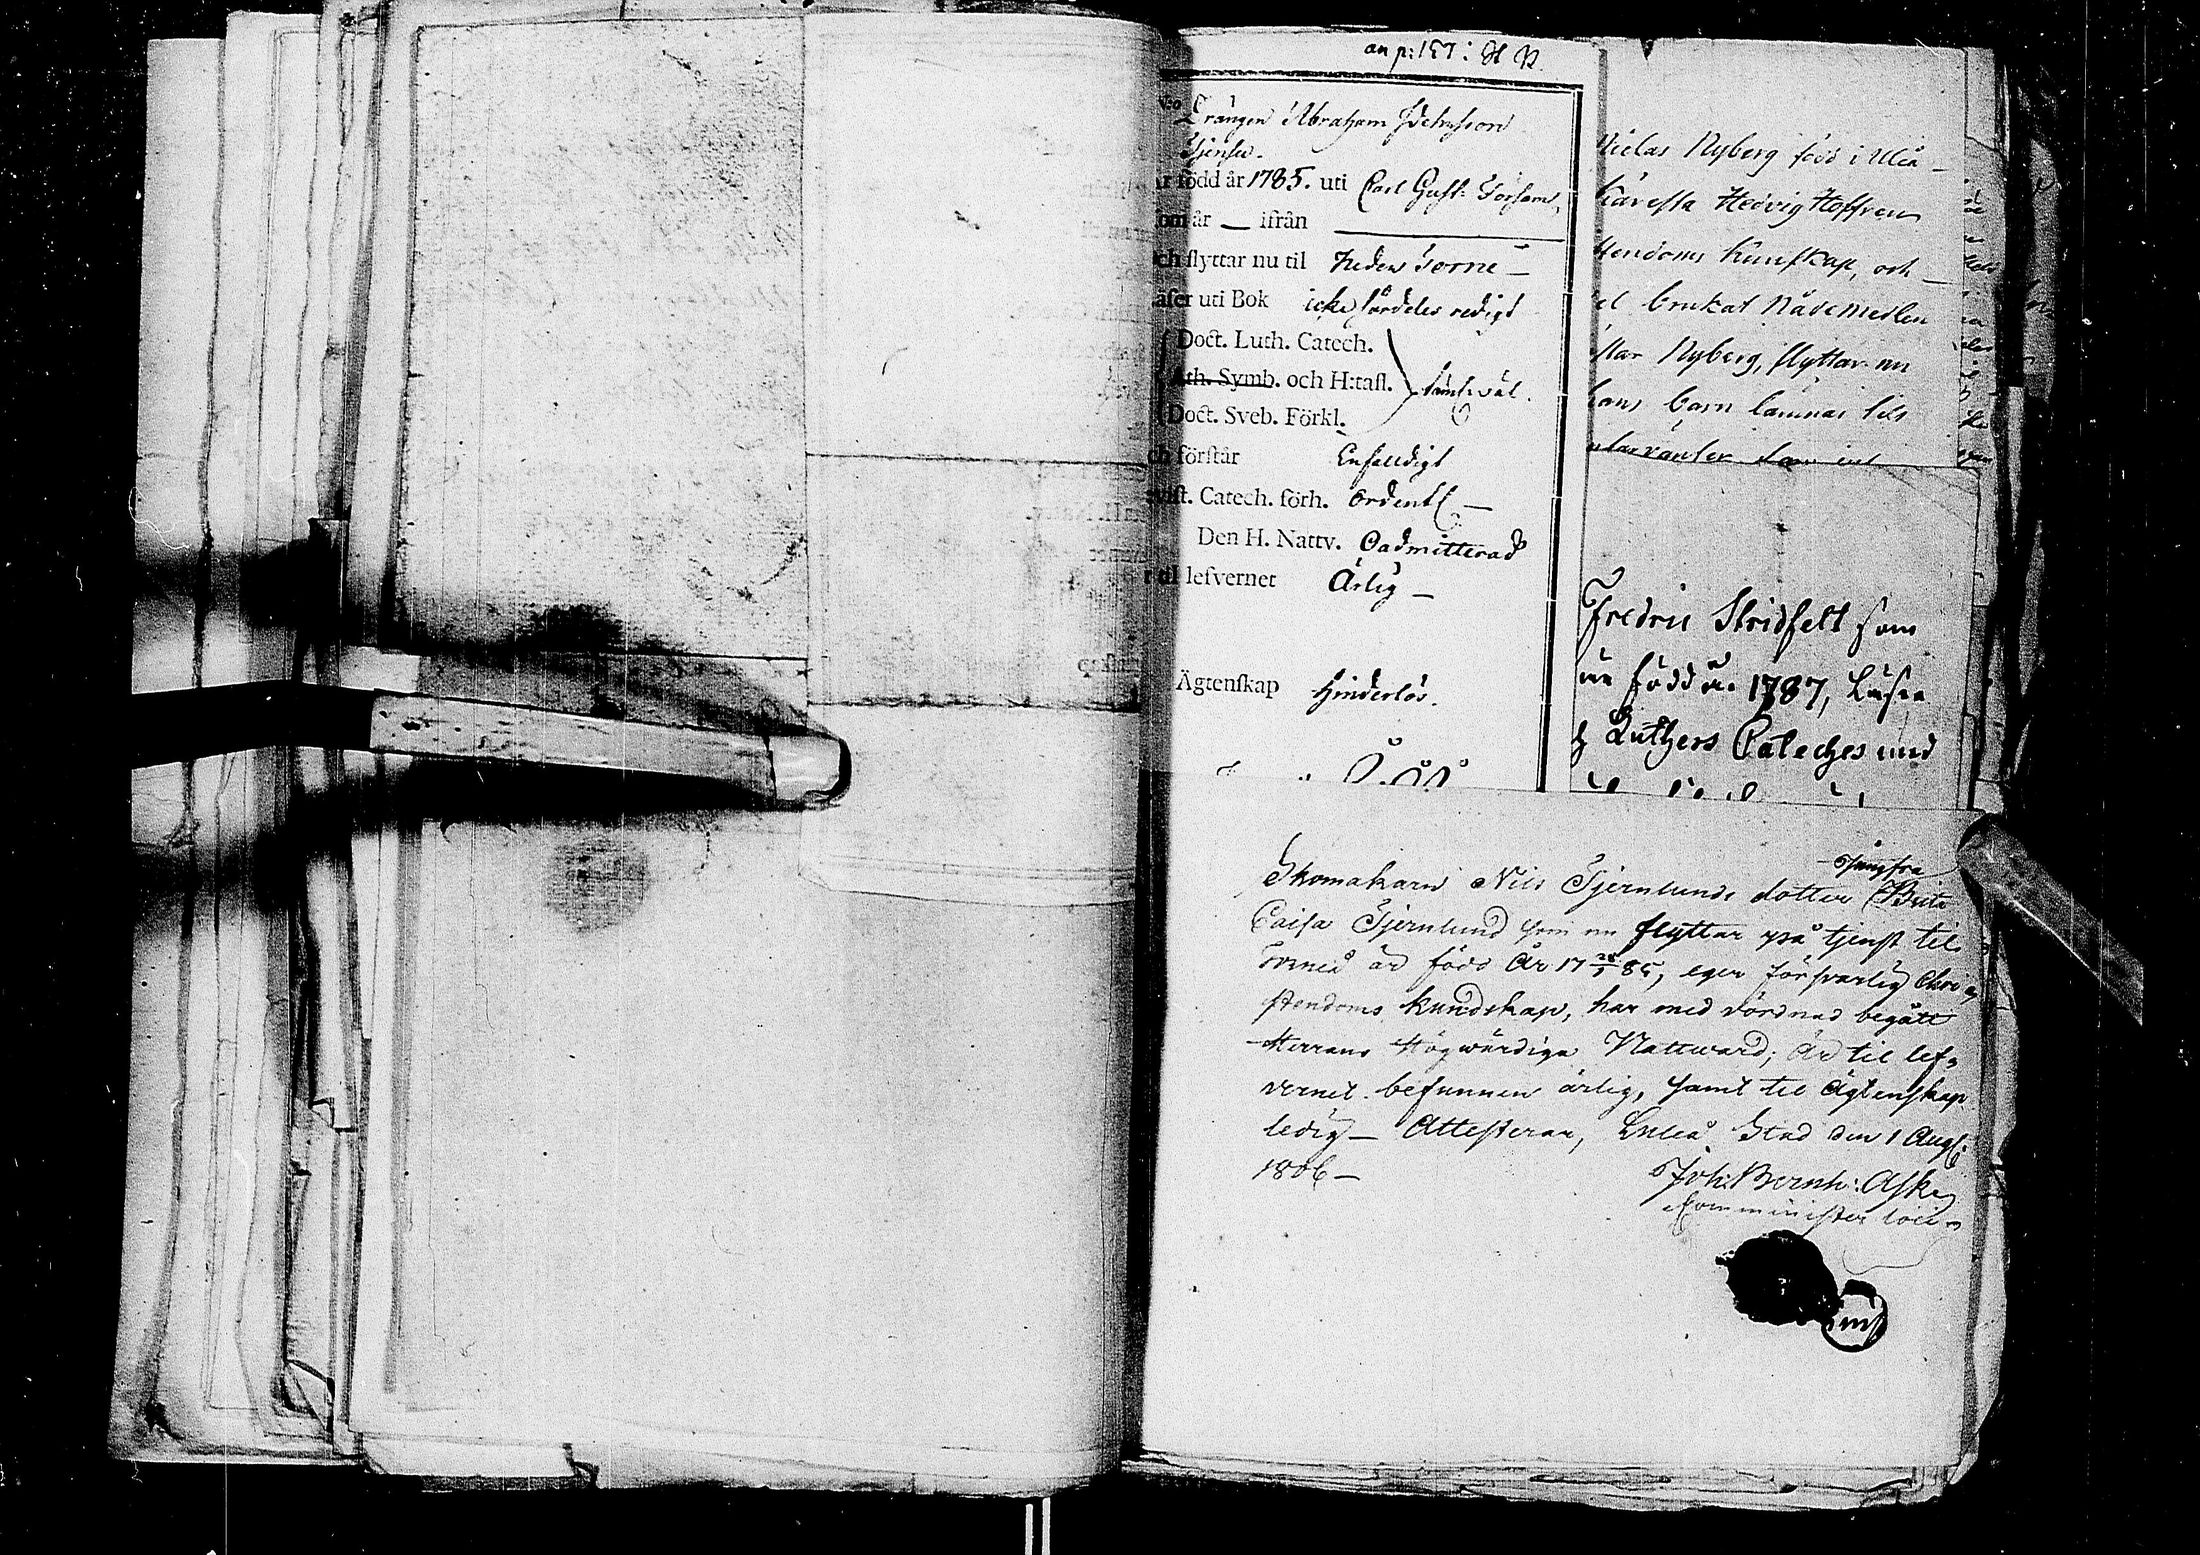 an p: 157:
Drängen Abraham Johnsson
Tjenser.
är född år 1785. uti Carl Gust: Församl.
om år — ifrån
ch flyttar nu til Neder Torne —
äser uti Bok icke särdeles redigt
Doct. Luth. Catech.
Ath. Symb. och H:tafl. teml. väl.
Doct. Sveb. Förkl.
ch förstår Enfaldigt
vist. Catech. förh. ordentl —
Den H. Nattv. Oadmitterad
r til lefvernet Ärlig —
Ägtenskap Hinderlös.
Niclas Nyberg född i Uleå
Hedvig Hoffren
stendoms kunskap, och
el brukat Nådemedlen
Nyberg, flyttar nu
hans barn lämnas tils
Fredric Stridfelt som
är född år 1787, Läser
Luthers Cateches med
Jungfru
Skomakarn Nils Tjernlunds dotter Brita
Caisa Tjernlund som nu flyttar på tjenst til
Torneå är född år 17 28/5 85, eger försvarlig Chri
stendoms kundskap, har med vördnad begått
Herrans Högwürdiga Nattward; är til lef
vernet befunnen ärlig, samt til Ägtenskap
ledig — Attesterar, Luleå Stad den 1 Aug:
1806 —
Joh: Bernh: Aske
Comminister loci